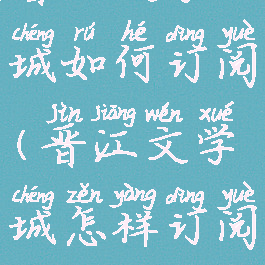 chéng rú hé dìng yuè
城如何订阅
jìn jiāng wén xué
(晋江文学
chéng zěn yàng dìng yuè
城怎样订阅